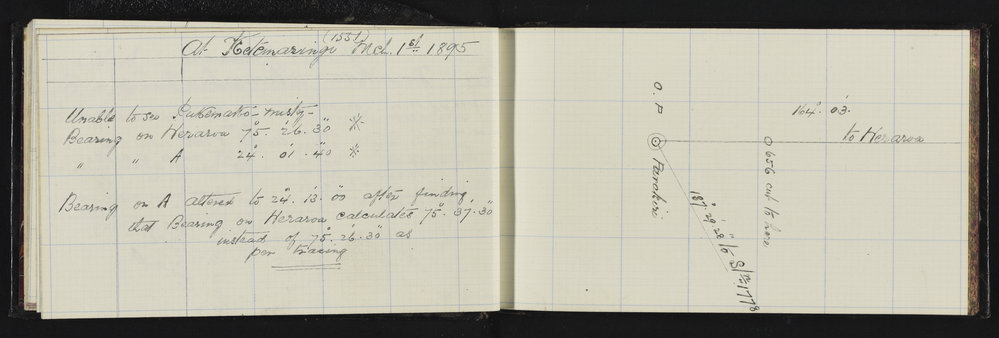 At Ketemaringi (1551) Mch. 1st 1895
Unable to see Pukematio - misty -
Bearing on Heraroa 75°. 26'. 30" ※
" " A 24°. 01'. 40" ※
Bearing on A altered to 24°. 13'. 00" after finding
that Bearing on Heraroa calculates 75°. 37'. 30"
instead of 75°. 26'. 30" as
per tracing
O. P
Parakiri
187° 29' 28" to S/Stn 1778
0656 cut to here
164°. 03'.
to Heraroa